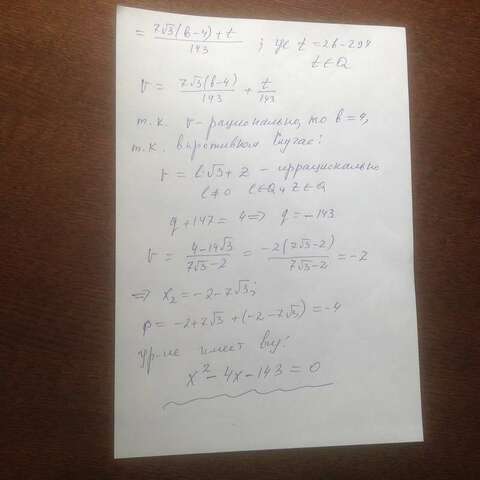 = 7√3(b-4)+t / 143 ; где t = 2b-294
t ∈ Q
r = 7√3(b-4)/143 + t/143
т.к. r - рационально, то b = 4,
т.к. в противном случае:
r = l·√3 + z - иррационально
l≠0 l∈Q, z∈Q
q + 147 = 4 => q = -143
r = 4-14√3 / 7√3-2 = -2(7√3-2) / 7√3-2 = -2
=> x₂ = -2-7√3;
p = -2+7√3 + (-2-7√3) = -4
ур-ие имеет вид:
x² - 4x - 143 = 0